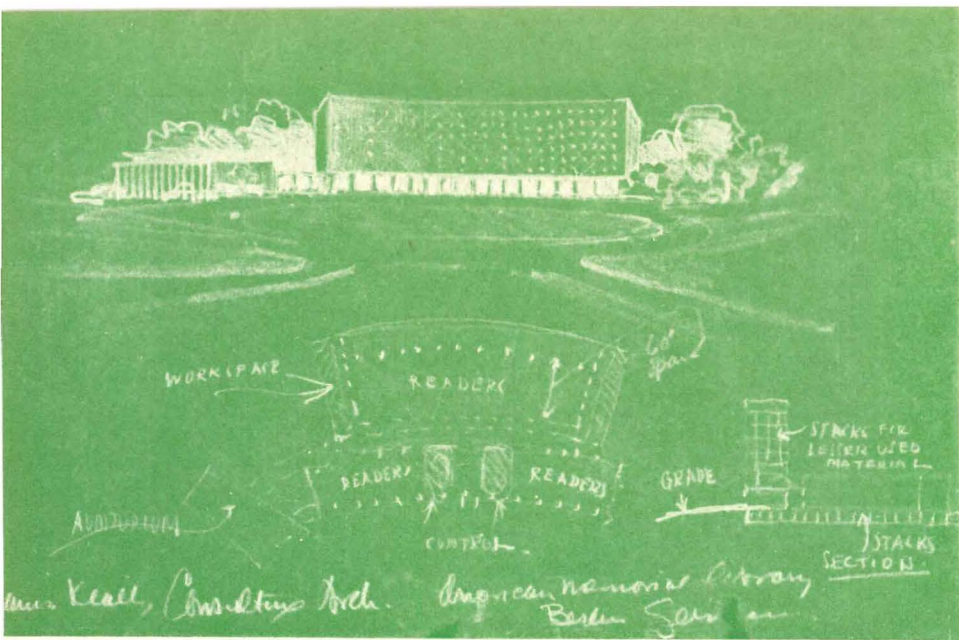 60'
span
WORKSPACE
READERS
READERS
READERS
AUDITORIUM
CONTROL
GRADE
STACKS FOR
LESSER USED
MATERIAL
STACKS
SECTION
Keally, Consulting Arch.
American Memorial Library
Berlin